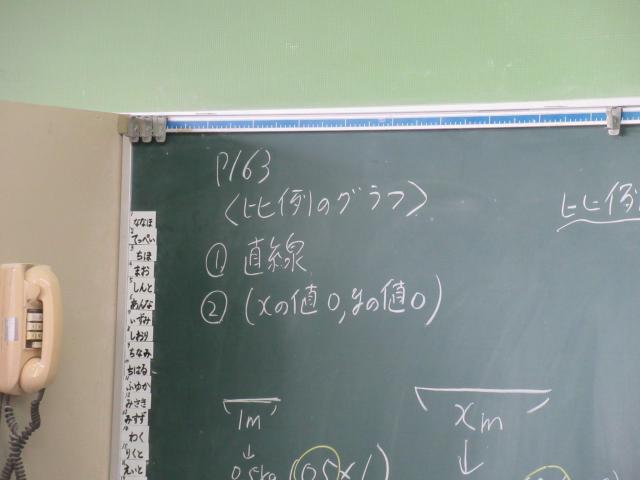 P163
〈比例のグラフ〉
比例
① 直線
② (xの値0,yの値0)
1m
xm
↓
↓
0.5kg
0.5×1
ななほ
てっぺい
ちほ
まお
しんと
あんな
いずみ
しおり
ちなみ
ちはる
ふゆか
みさき
みすず
わく
りくと
えいと